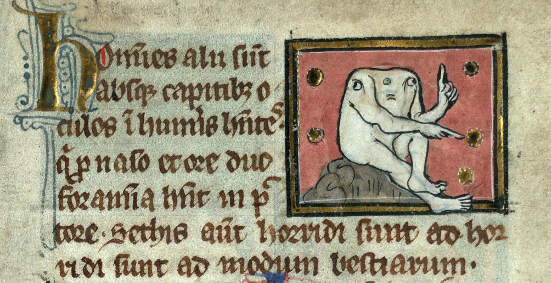 homines alii sūt
absq; capitibꝫ o
culos ī hum'is hn̄tes
q̄ p naso et ore duo
foramia hn̄t in p
tore. Sethis aūt horridi sunt ad hor
ridi sunt ad modum bestiarum.